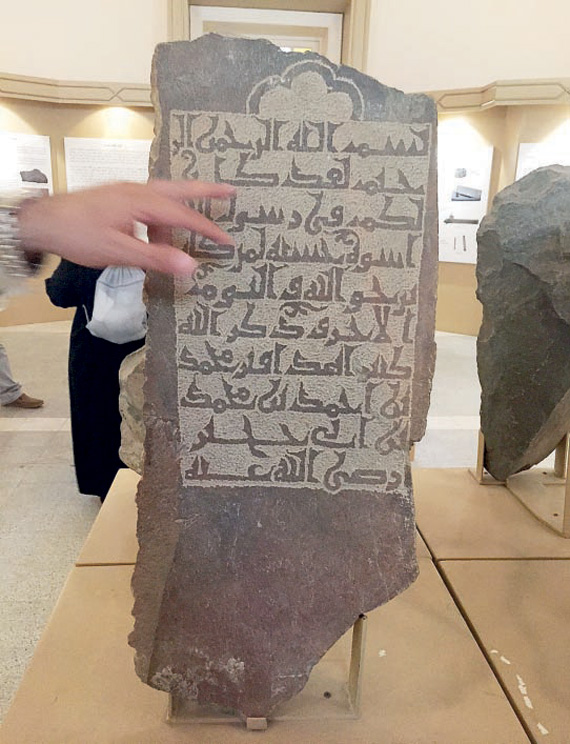 بسم الله الرحمن الر
حيم لقد كا ن
لكم في رسول
اسوة حسنة لمن كا
يرجو الله واليوم
الاخر وذكر الله
كثيرا هذا قبر محمد
بن احمد بن محمد
بن ابي
رضي الله عنه